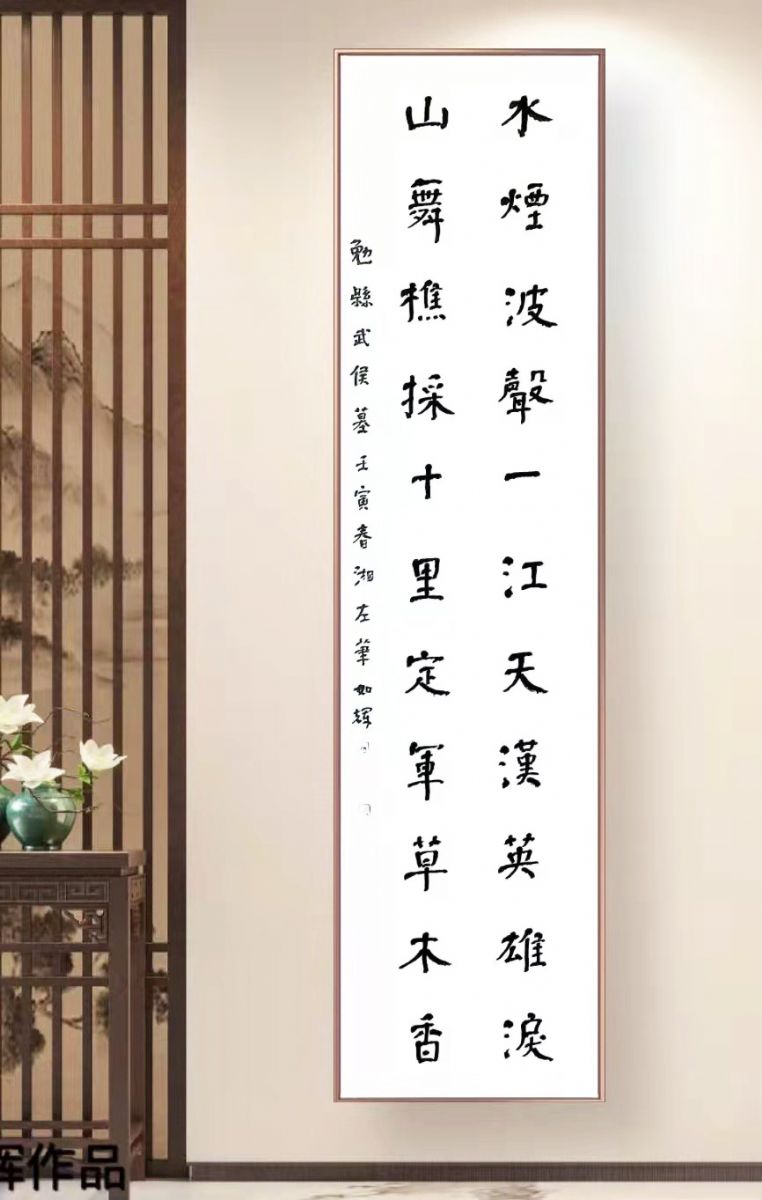 水煙波聲一江天漢英雄淚
山舞樵採十里定軍草木香
勉縣武侯墓壬寅春湘左華如輝
輝作品